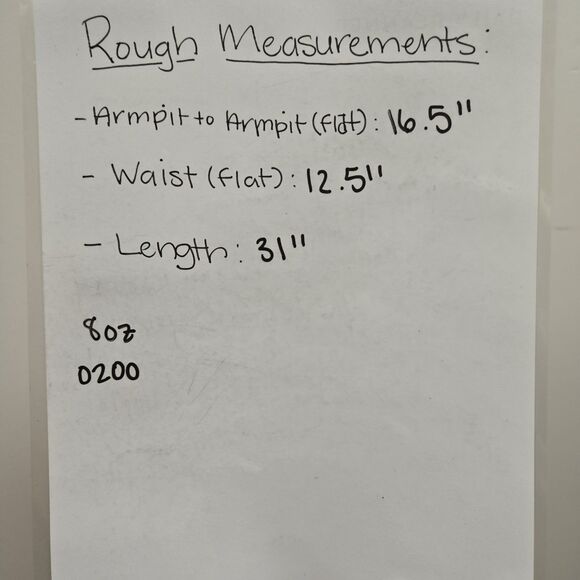 Rough Measurements:
- Armpit to Armpit (flat): 16.5"
- Waist (flat): 12.5"
- Length: 31"
8oz
0200